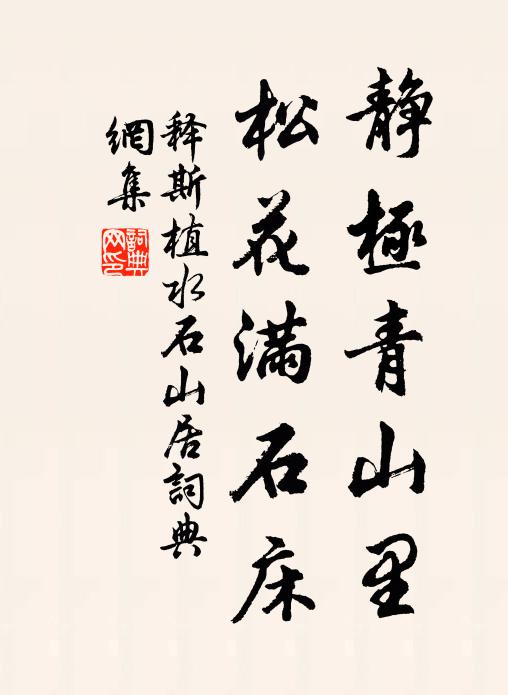 静極青山里
松花满石床
释斯植水石山居詞典
網集
詞典
网印